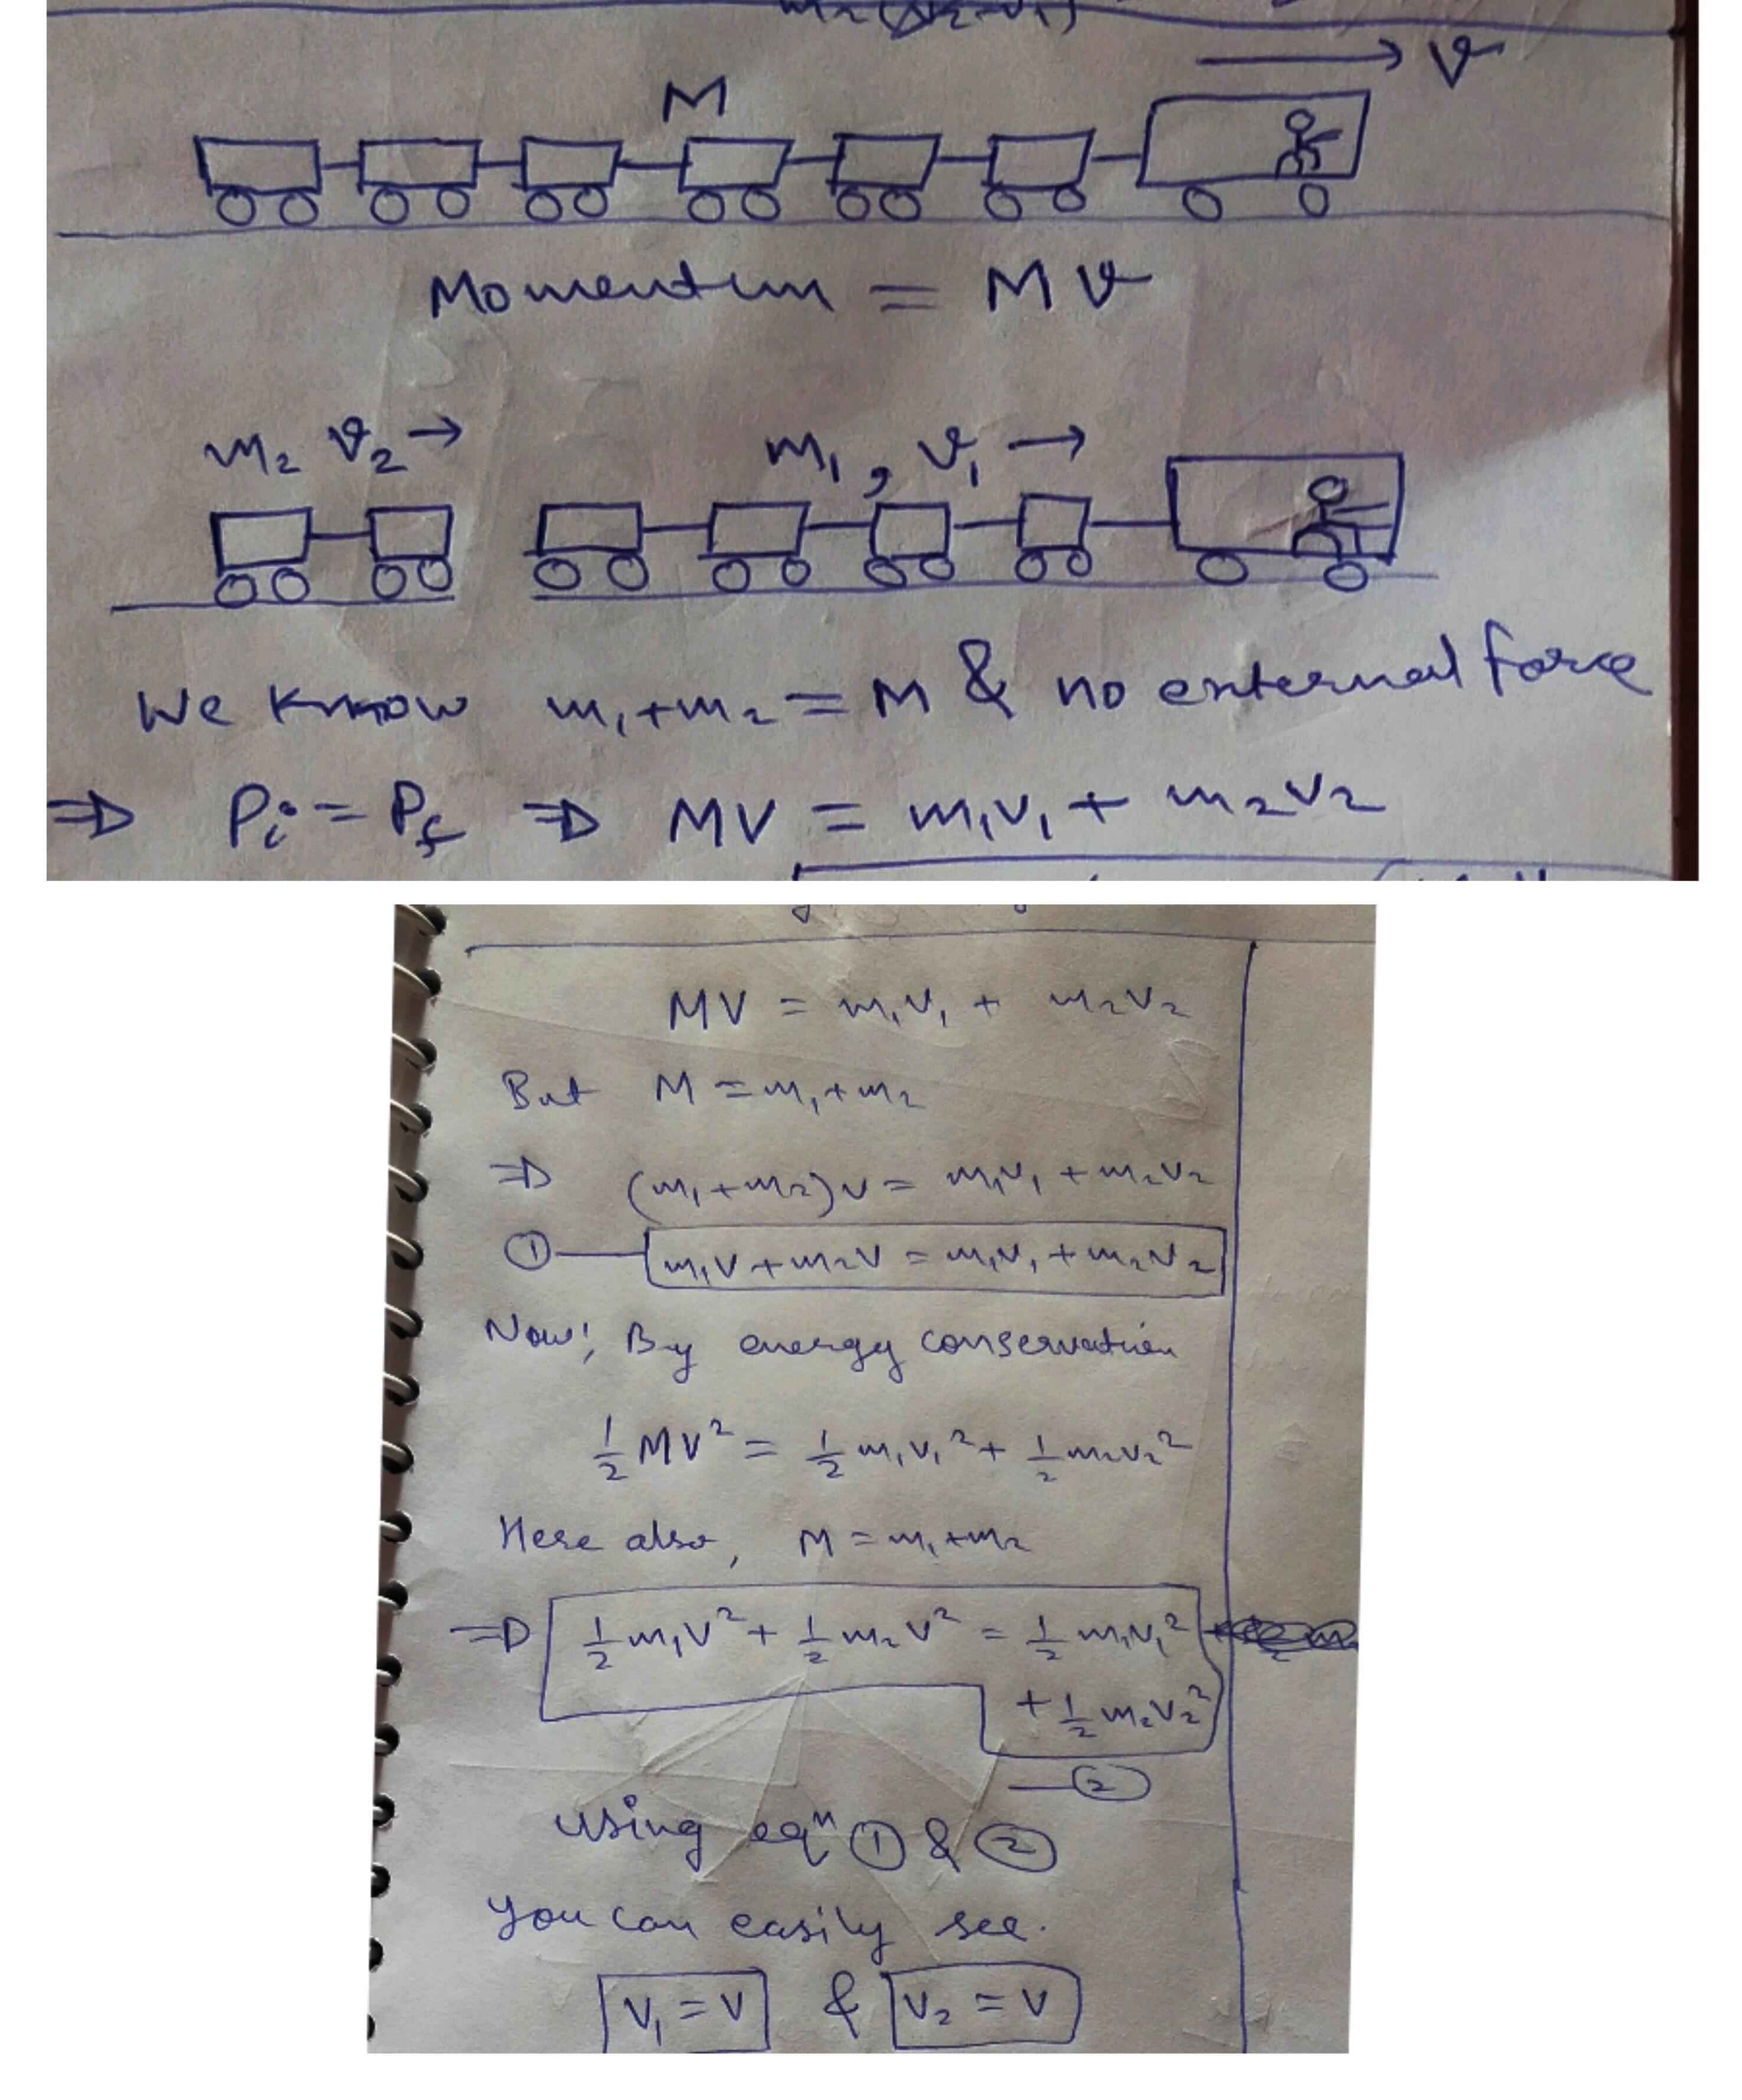 m₂(v₂-v₁)
→ v
M
Momentum = M v
m₂ v₂ → m₁, v₁ →
We know m₁+m₂ = M & no external force
⇒ Pi = Pf ⇒ MV = m₁v₁ + m₂v₂
MV = m₁v₁ + m₂v₂
But M = m₁+m₂
⇒ (m₁+m₂)v = m₁v₁ + m₂v₂
① m₁v + m₂v = m₁v₁ + m₂v₂
Now, By energy conservation
½ MV² = ½ m₁v₁² + ½ m₂v₂²
Here also, M = m₁+m₂
⇒ ½ m₁v² + ½ m₂v² = ½ m₁v₁²
+ ½ m₂v₂²
②
using eqⁿ ① & ②
you can easily see.
v₁ = v & v₂ = v